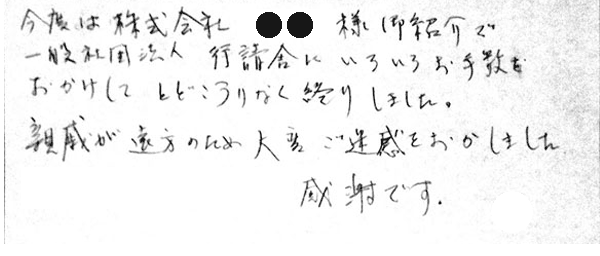 今度は株式会社 ●● 様御紹介で
一般社団法人 行請舎にいろいろお手数を
おかけして とどこうりなく終りしました。
親戚が遠方のため大変ご迷惑をおかしました
感謝です.